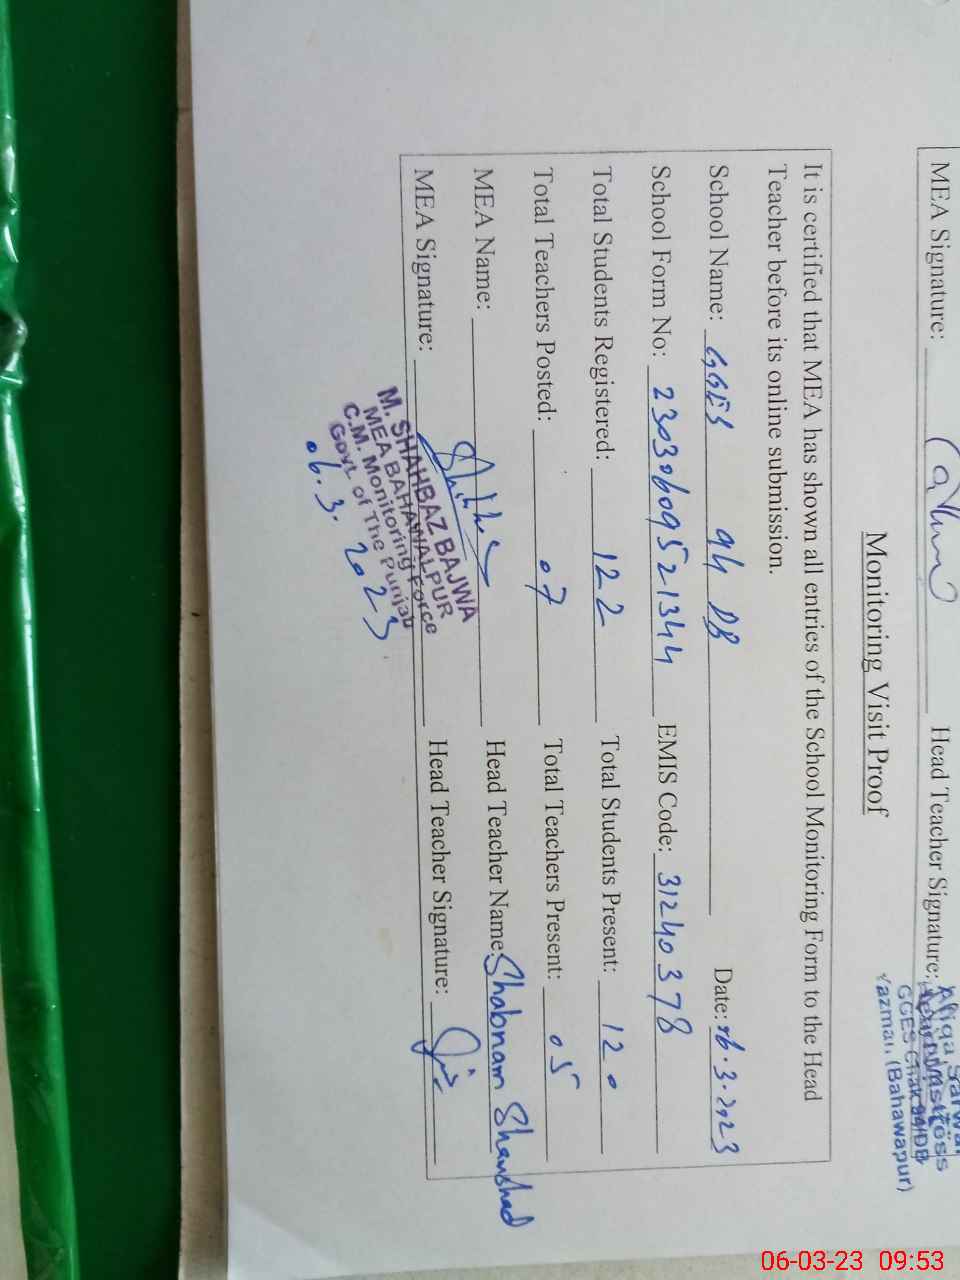 MEA Signature: Head Teacher Signature:
Afiqa Sarwar
Headmistress
GGES Chak 94/DB
Yazman, (Bahawapur)
Monitoring Visit Proof
It is certified that MEA has shown all entries of the School Monitoring Form to the Head
Teacher before its online submission.
School Name: GGES 94 DB Date: 06.3.2023
School Form No: 23030609521344 EMIS Code: 31240378
Total Students Registered: 122 Total Students Present: 120
Total Teachers Posted: 07 Total Teachers Present: 05
MEA Name: Head Teacher Name: Shabnam Shamshad
MEA Signature: Head Teacher Signature:
M. SHAHBAZ BAJWA
MEA BAHAWALPUR
C.M. Monitoring Force
Govt. of The Punjab
06.3.2023
06-03-23 09:53